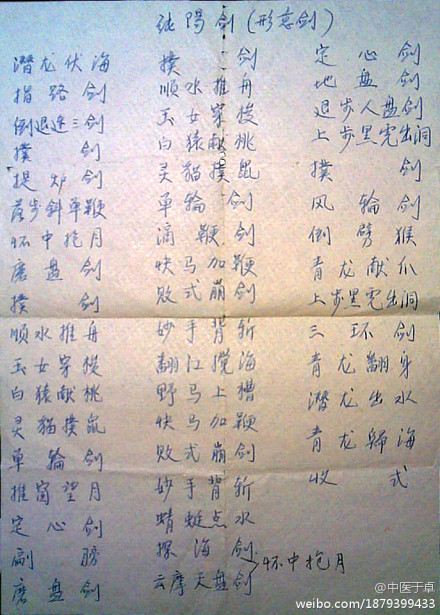 纯阳剑(形意剑)
潜龙伏海
指路剑
倒退连三剑
撲剑
提炉剑
荅步斜单鞭
怀中抱月
磨盘剑
撲剑
顺水推舟
玉女穿梭
白猿献桃
灵猫撲鼠
单轮剑
推窗望月
定心剑
副膀
磨盘剑
撲剑
顺水推舟
玉女穿梭
白猿献桃
灵猫撲鼠
单轮剑
滴鞭剑
快马加鞭
败式崩剑
妙手背斩
翻江搅海
野马上槽
快马加鞭
败式崩剑
妙手背斩
蜻蜓点水
探海剑
怀中抱月
云摩天盘剑
定心剑
地盘剑
退步人盘剑
上步黑虎出洞
撲剑
风轮剑
倒劈猴
青龙献爪
上步黑虎出洞
三环剑
青龙翻身
潜龙出水
青龙归海
收式
@中医于卓
weibo.com/1879399433